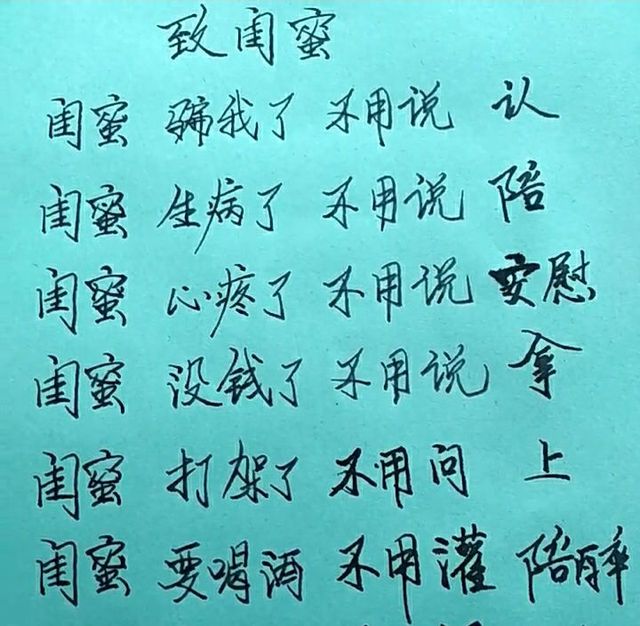 致闺蜜
闺蜜 骗我了 不用说 认
闺蜜 生病了 不用说 陪
闺蜜 心疼了 不用说 安慰
闺蜜 没钱了 不用说 拿
闺蜜 打架了 不用问 上
闺蜜 要喝酒 不用灌 陪醉